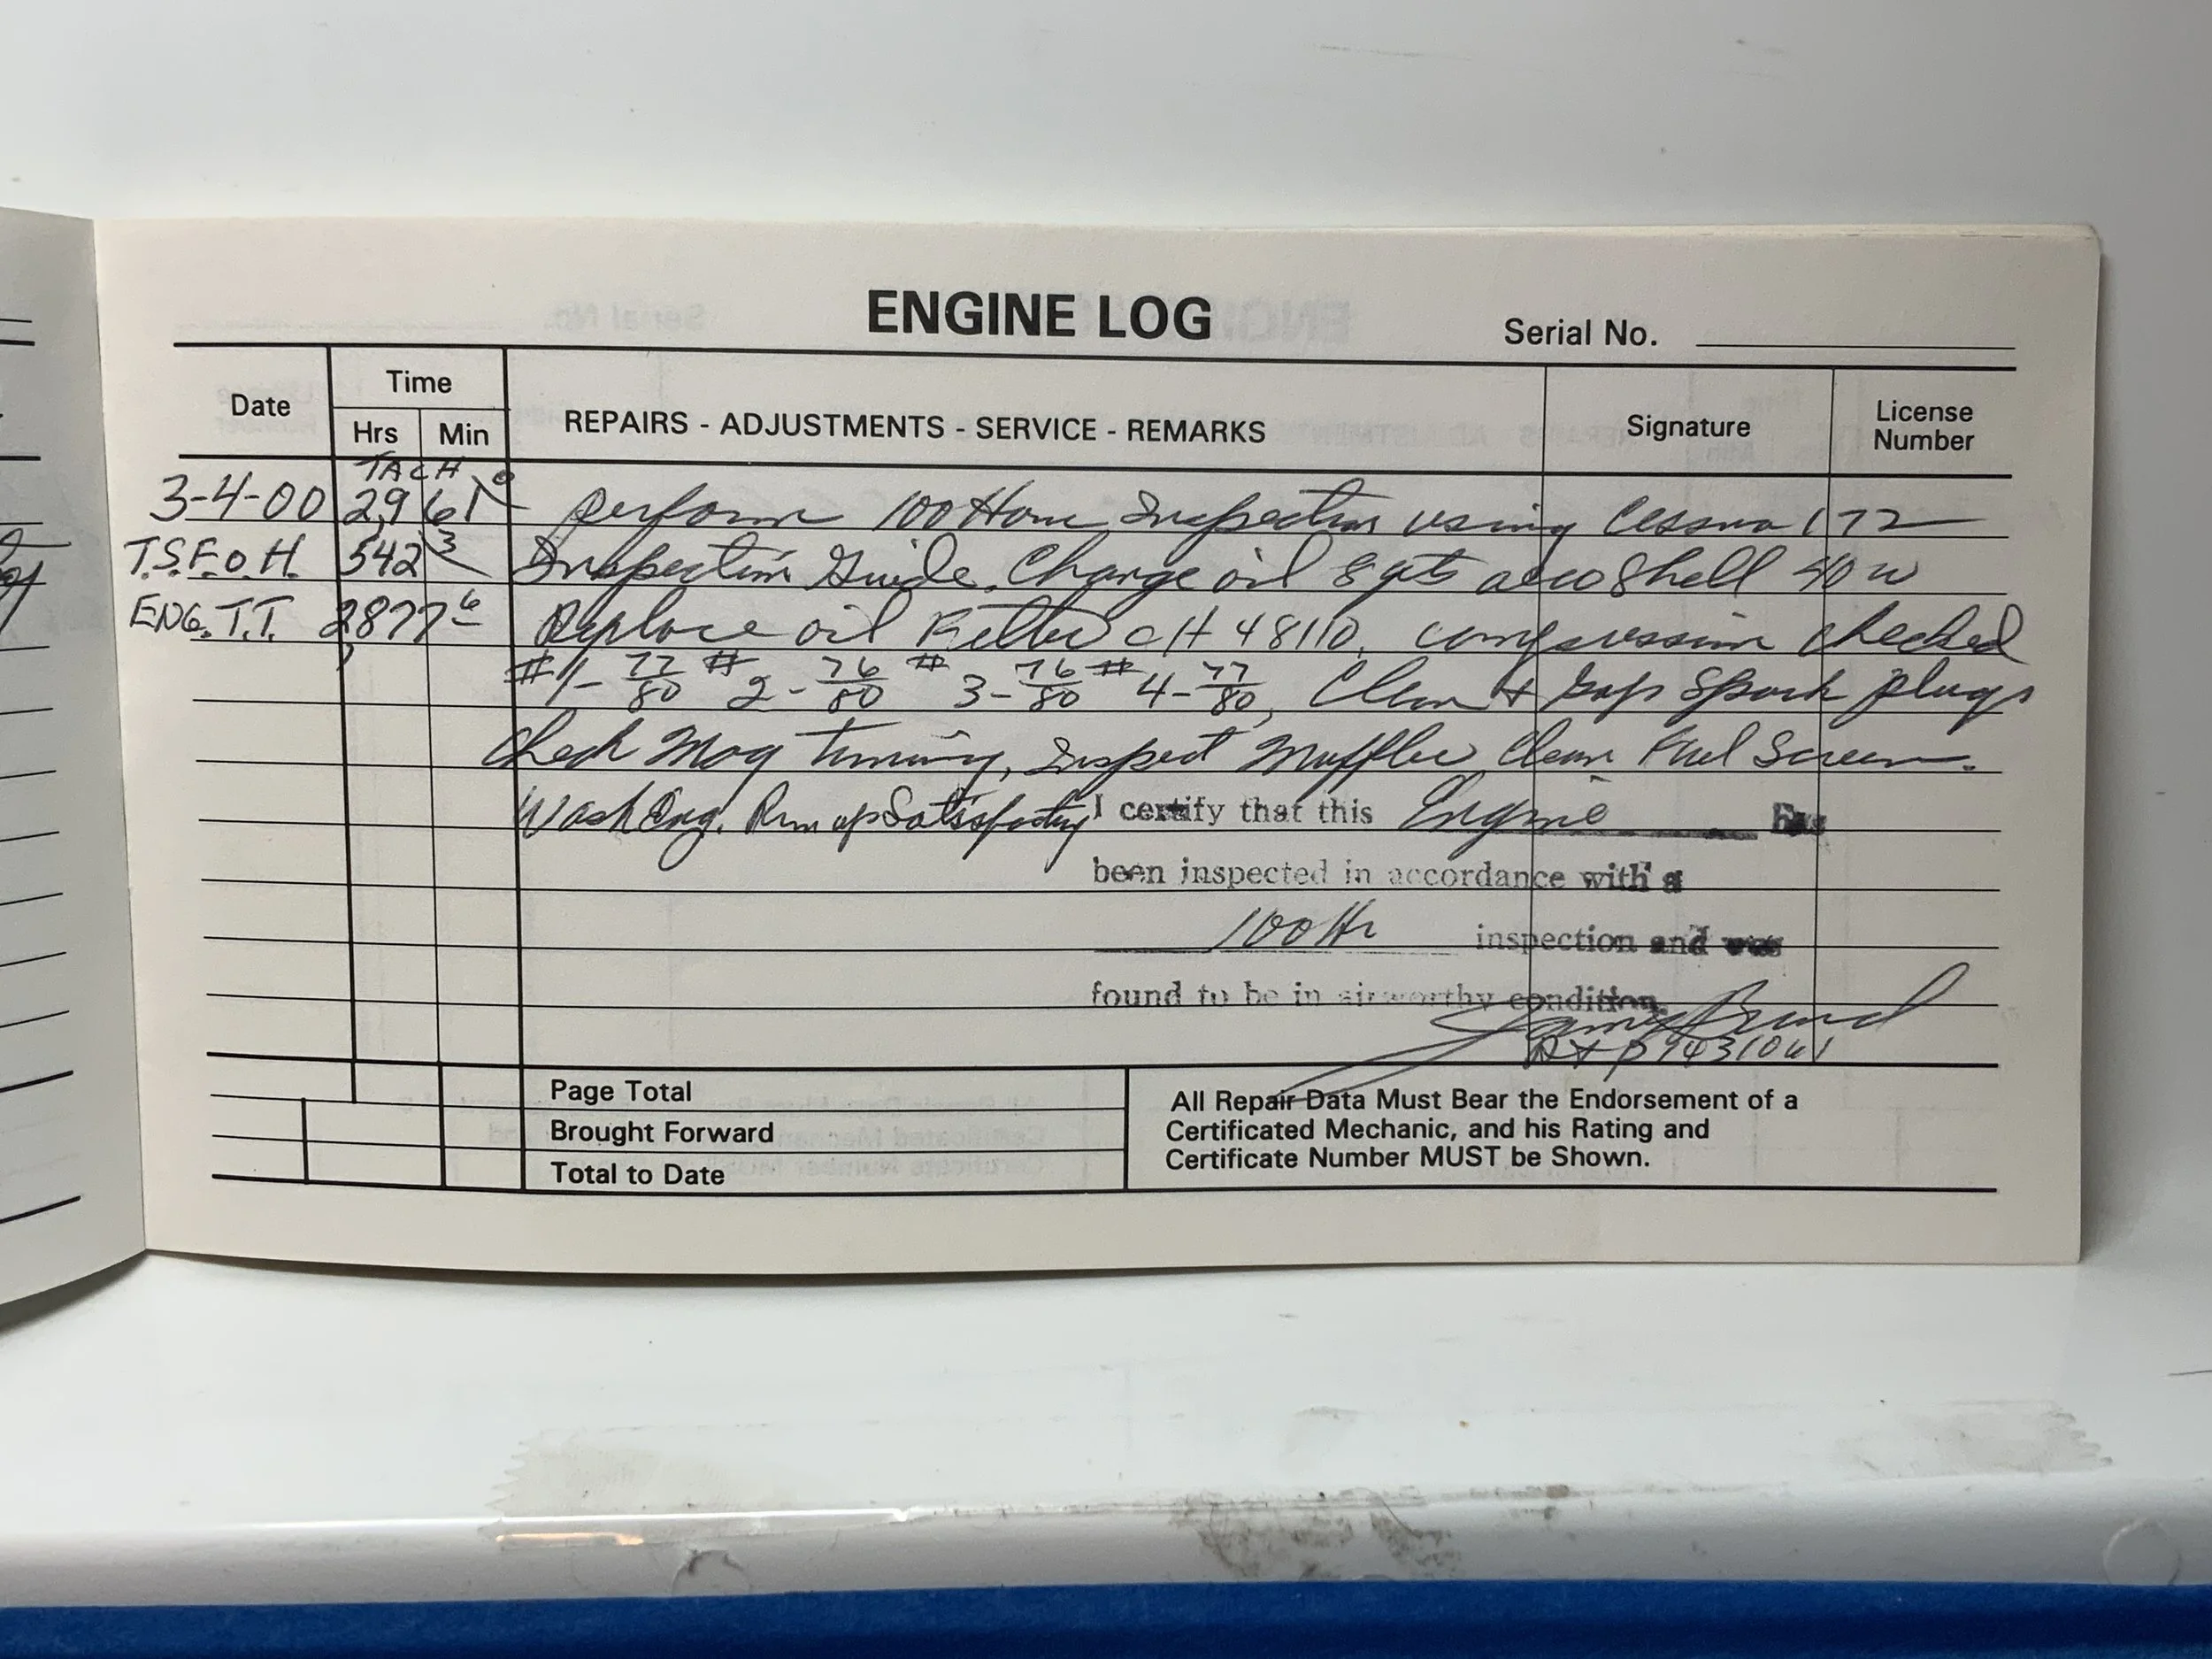 ENGINE LOG
Serial No.
Date
Time
Hrs
Min
REPAIRS - ADJUSTMENTS - SERVICE - REMARKS
Signature
License
Number
TACH
3-4-00 2,961.0 Perform 100 Hour Inspection using Cessna 172
T.S.F.O.H. 542.3 Inspection Guide, Change oil 8 qts aeroshell 40 w
ENG. T.T. 2877.6 Replace oil Filter CH 48110, compression checked
#1- 72/80 #2- 76/80 #3- 76/80 #4- 77/80, Clean + Gap Spark plugs
Check Mag timing, Inspect Muffler, Clean Fuel Screen.
Wash Eng. Run up Satisfactory I certify that this Engine has
been inspected in accordance with a
100 Hr inspection and was
found to be in airworthy condition.
Page Total
Brought Forward
Total to Date
All Repair Data Must Bear the Endorsement of a
Certificated Mechanic, and his Rating and
Certificate Number MUST be Shown.